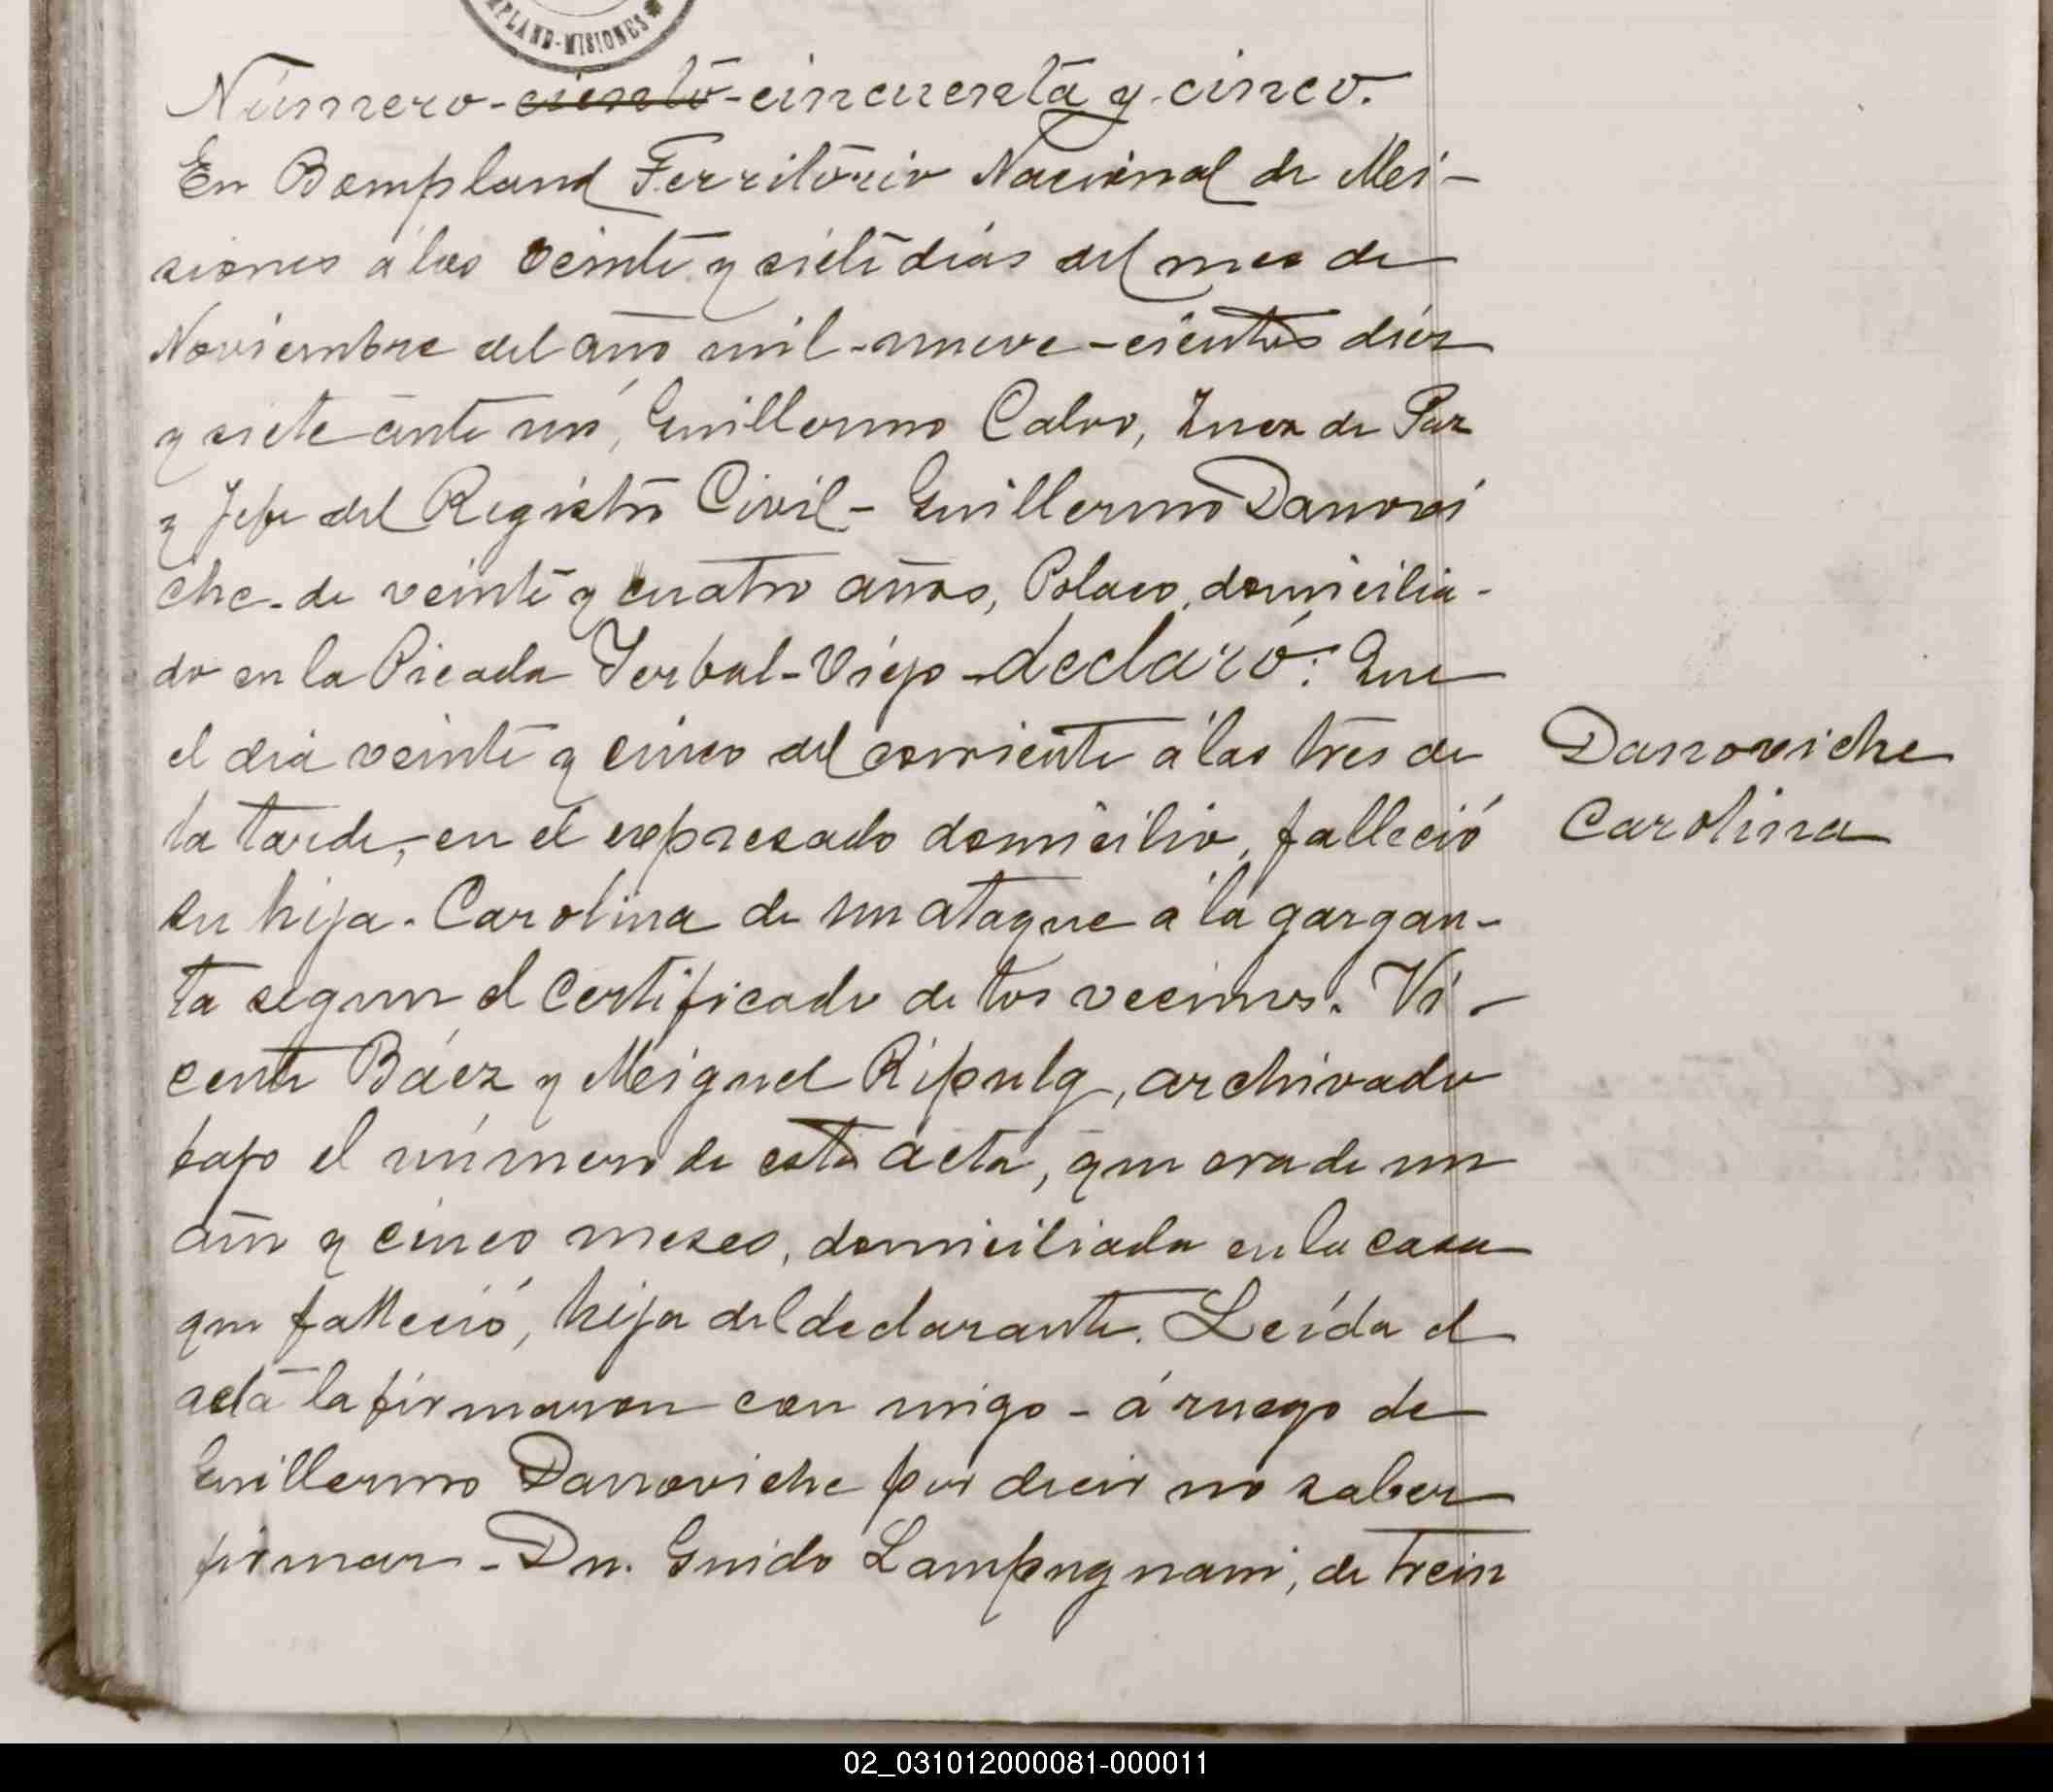 MPLAND-MISIONES
Número-ciento-cincuenta y cinco.
En Bompland Territorio Nacional de Mi-
siones á los veinte y siete dias del mes de
Noviembre del año mil-nueve-cientos diez
y siete ante mí, Guillermo Calvo, Juez de Paz
y Jefe del Registro Civil - Guillermo Danovi
che - de veinte y cuatro años, Polaco, domicilia-
do en la Picada Yerbal-Viejo - declaró: Que
el dia veinte y cinco del corriente á las tres de
la tarde, en el expresado domicilio, falleció
su hija - Carolina de un ataque á la gargan-
ta segun el certificado de los vecinos. Vi-
cente Báez y Miguel Ripulg, archivado
bajo el número de esta acta, que era de un
año y cinco meses, domiciliada en la casa
que falleció, hija del declarante. Leída el
acta la firmaron con migo - á ruego de
Guillermo Danoviche por decir no saber
firmar - Dn. Guido Lampugnani, de trein
Danoviche
Carolina
02_031012000081-000011